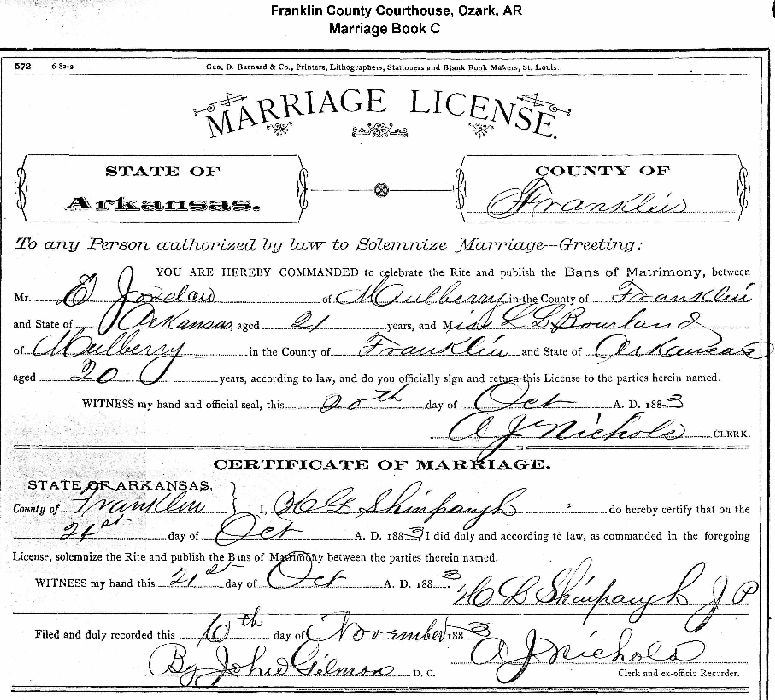 Franklin County Courthouse, Ozark, AR
Marriage Book C
572 6 82-2 Geo. D. Barnard & Co., Printers, Lithographers, Stationers and Blank Book Makers, St. Louis.
MARRIAGE LICENSE.
STATE OF
Arkansas.
COUNTY OF
Franklin
To any Person authorized by law to Solemnize Marriage—Greeting:
YOU ARE HEREBY COMMANDED to celebrate the Rite and publish the Bans of Matrimony, between
Mr. E Jordan of Mulberry in the County of Franklin
and State of Arkansas aged 21 years, and Miss L L Bourland
of Mulberry in the County of Franklin and State of Arkansas
aged 20 years, according to law, and do you officially sign and return this License to the parties herein named.
WITNESS my hand and official seal, this 20th day of Oct A. D. 1883
A J Nichols CLERK.
CERTIFICATE OF MARRIAGE.
STATE OF ARKANSAS,
County of Franklin } I, Shinpaugh do hereby certify that on the
21st day of Oct A. D. 1883 I did duly and according to law, as commanded in the foregoing
License, solemnize the Rite and publish the Bans of Matrimony between the parties therein named.
WITNESS my hand this 21st day of Oct A. D. 1883
Shinpaugh J P
Filed and duly recorded this 10th day of November 1883
A J Nichols
By John Gilmon D. C. Clerk and ex-officio Recorder.